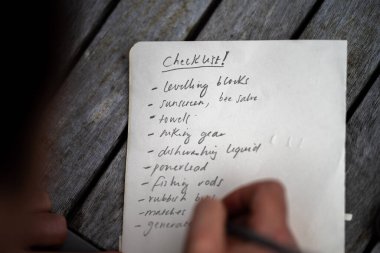 Checklist!
- levelling blocks
- sunscreen, bee salve
- towels
- hiking gear
- dishwashing liquid
- powerlead
- fishing rods
- rubbish
- matches